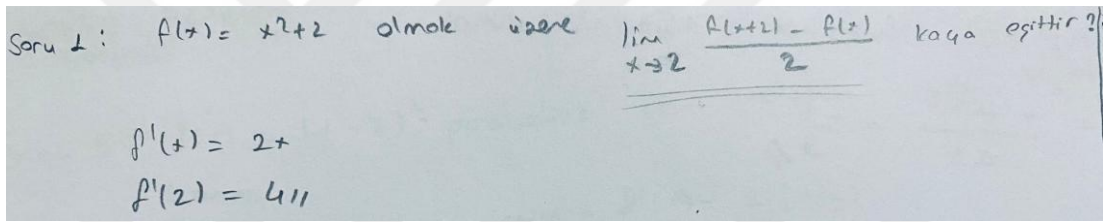 Soru 1: f(x) = x²+2 olmak üzere lim x→2 f(x+2) - f(x) / 2 kaça eşittir?
f'(x) = 2x
f'(2) = 4//